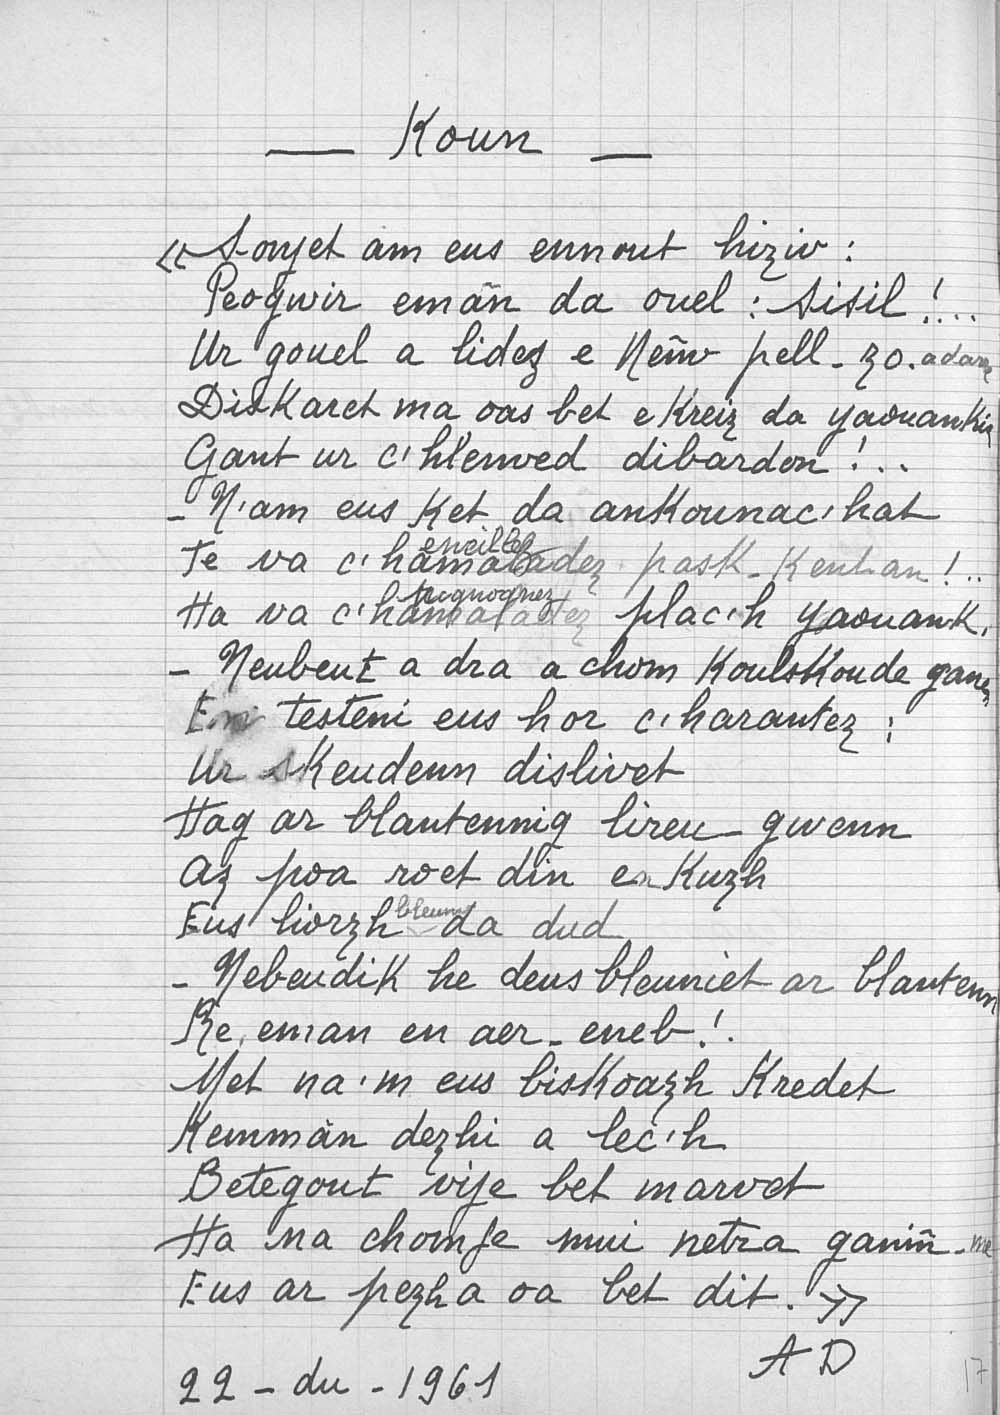 — Koun —
« Sonjet am eus ennout hiziv :
Peogwir emañ da ouel : Sisil !...
Ur gouel a lidez e Neñv pell-zo. adarre
Diskaret ma oas bet e Kreiz da yaouankiz
Gant ur c'hlenved dibardon !...
- N'am eus Ket da ankounac'hat
enveilled
Te va c'hamaladez pask-Kentañ !..
Ha va c'hamaladez plac'h yaouank.
- Neubeut a dra a chom Koulskoude ganez
En testeni eus hor c'harantez :
Ur sKeudenn dislivet
Hag ar blantennig lireu-gwenn
Az poa roet din en Kuzh
bleunv
Eus liorzh da dud
- Nebeudik he deus bleuniet ar blantenn
Re emañ en aer-eneb !.
Met na'm eus bisKoazh Kredet
Kemmañ dezhi a lec'h
Betegout vije bet marvet
Ha na chomfe mui netra ganiñ-me
Eus ar pezh a oa bet dit. »
A D
22 - du - 1961
17